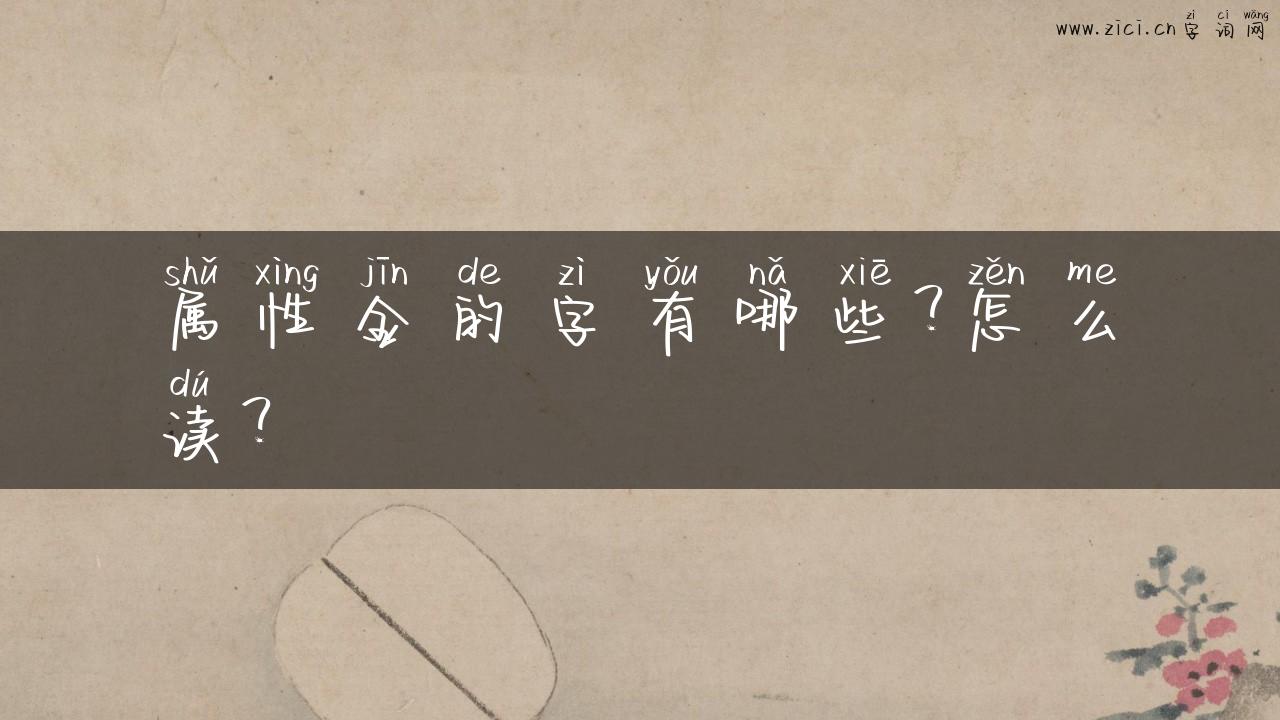 zì cí wǎng
www.zici.cn字词网
shǔ xìng jīn de zì yǒu nǎ xiē zěn me
属性金的字有哪些？怎么
dú
读？